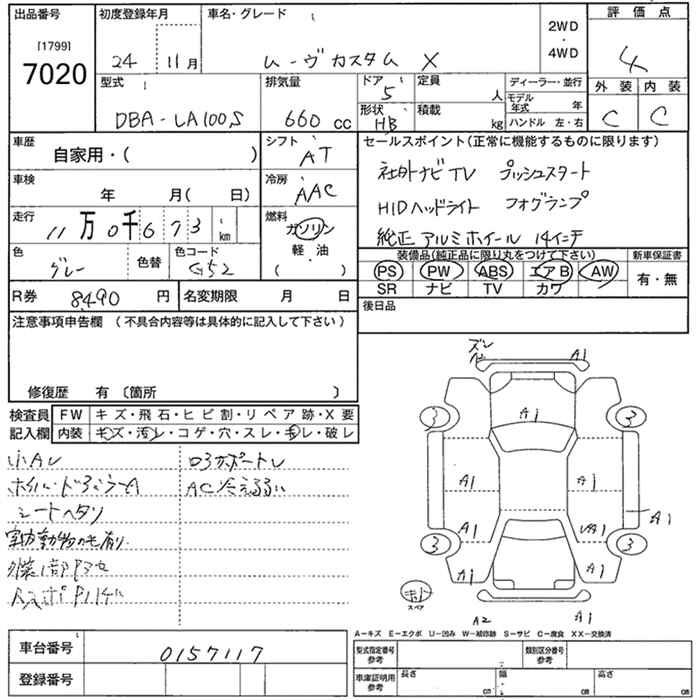 出品番号
[1799]
7020
初度登録年月
24 11月
車名・グレード
ムーヴカスタム X
2WD
・
4WD
評価点
4
型式
DBA-LA100S
排気量
660 cc
ドア
5
形状
HB
定員
人
積載
kg
ディーラー・並行
モデル年式 年
ハンドル 左・右
外装
C
内装
C
車歴
自家用・( )
シフト
AT
車検
年 月( 日)
冷房
AAC
走行
11万0千673 km
燃料
ガソリン
軽・油
( )
色
グレー
色替
色コード
G52
R券
8490 円
名変期限 月 日
セールスポイント(正常に機能するものに限ります)
社外ナビTV プッシュスタート
HIDヘッドライト フォグランプ
純正アルミホイール 14インチ
装備品(純正品に限り丸をつけて下さい)
PS PW ABS エアB AW
SR ナビ TV カワ
新車保証書
有・無
後日品
注意事項申告欄 (不具合内容等は具体的に記入して下さい)
修復歴 有 〔箇所 〕
検査員記入欄
FW キズ・飛石・ヒビ割・リペア跡・X要
内装 キズ・汚レ・コゲ・穴・スレ・毛レ・破レ
小AU
シートヘタリ
AC冷え弱い
ズレ
A1
A1
3
3
A1
A1
A1
A1
A1
3
3
A1
A1
スペア
A2
A1
A-キズ E-エクボ U-凹み W-補修跡 S-サビ C-腐食 XX-交換済
車台番号
0157117
登録番号
型式指定番号
参考
類別区分番号
参考
車庫証明用
参考
長さ cm
幅 cm
高さ cm